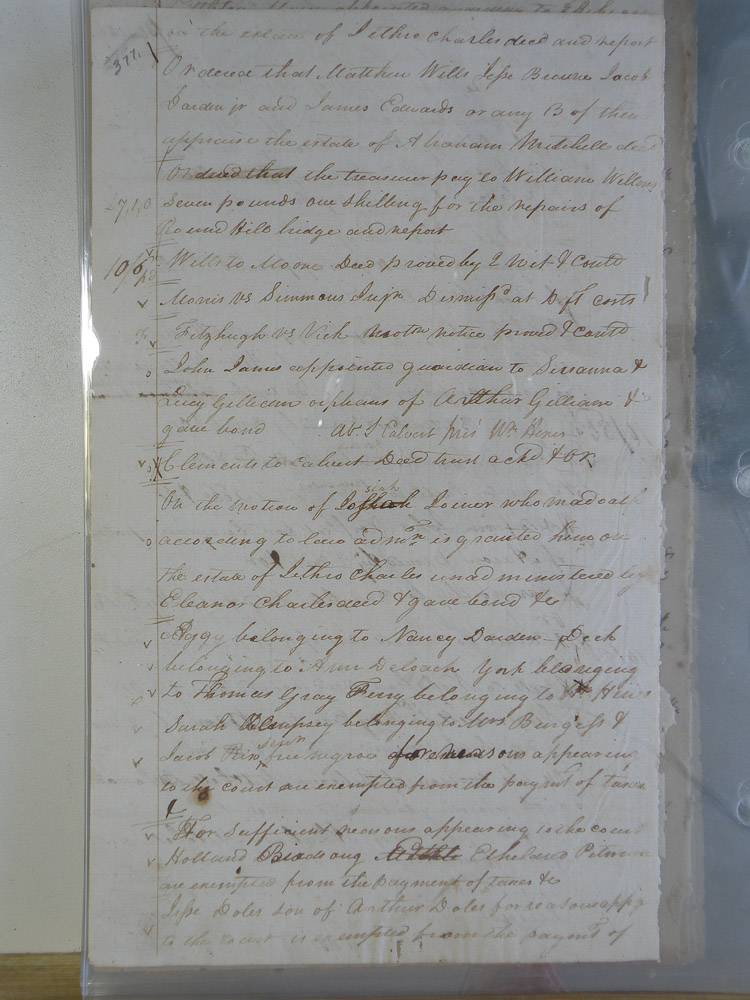 on the estate of Jethro Charles deced and report
377.
Ordered that Matthew Wills Jesse Browne Jacob
Darden jr and James Edwards or any 3 of them
appraise the estate of Abraham Mitchell deced
Ordered that the treasurer pay to William Wellons
7,1,0 Seven pounds one shilling for the repairs of
Round Hill bridge and report
Wills to Moore Deed proved by 2 Wit & Contd
Morris vs Simmons Injn Dismissd at Dft costs
Fitzhugh vs Vick Motn notice proved & contd
John James appointed guardian to Sussanna &
Lucy Gilliam orphans of Arthur Gilliam &
gave bond Ab. S Calvert pres Wm Hines
Clements to Calvert Deed trust ackd & OR
siah
On the motion of Joshah Joiner who made oath
according to law admon is granted him on
the estate of Jethro Charles unadministered by
Eleanor Charles deced & gave bond &c
Aggy belonging to Nancy Darden - Deck
belonging to Ann Deloach York belonging
to Thomas Gray Ferry belonging to Hines
Sarah Dempsey belonging to Mrs Burgess &
Jacob free negroe for reasons appearing
to the court are exempted from the paymt of taxes
For sufficient reasons appearing to the court
Holland Birdsong Etheland Pitman
are exempted from the payment of taxes &c
Jesse Doles son of Arthur Doles for reasons appg
to the court is exempted from the paymt of